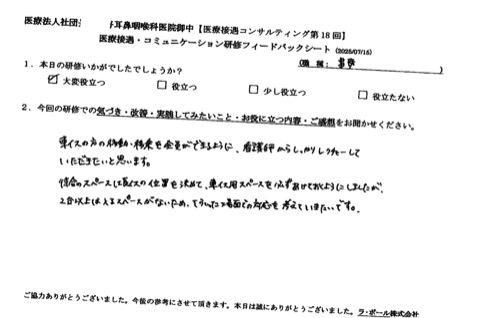 医療法人社団 耳鼻咽喉科医院御中【医療接遇コンサルティング第18回】
医療接遇・コミュニケーション研修フィードバックシート (2025/07/15)
(職種: )
1.本日の研修いかがでしたでしょうか?
☑ 大変役立つ □ 役立つ □ 少し役立つ □ 役立たない
2.今回の研修での気づき・改善・実践してみたいこと・お役に立つ内容・ご感想をお聞かせください。
車イスの方の移動・検査を全員ができるように、看護師からしっかりレクチャーして
いただきたいと思います。
待合のスペースは長イスの位置を決めて、車イス用スペースを必ずあけておくようにしましたが、
2台以上は入るスペースがないため、そういった場面での対応を考えていきたいです。
ご協力ありがとうございました。今後の参考にさせて頂きます。本日は誠にありがとうございました。ラ・ポール株式会社